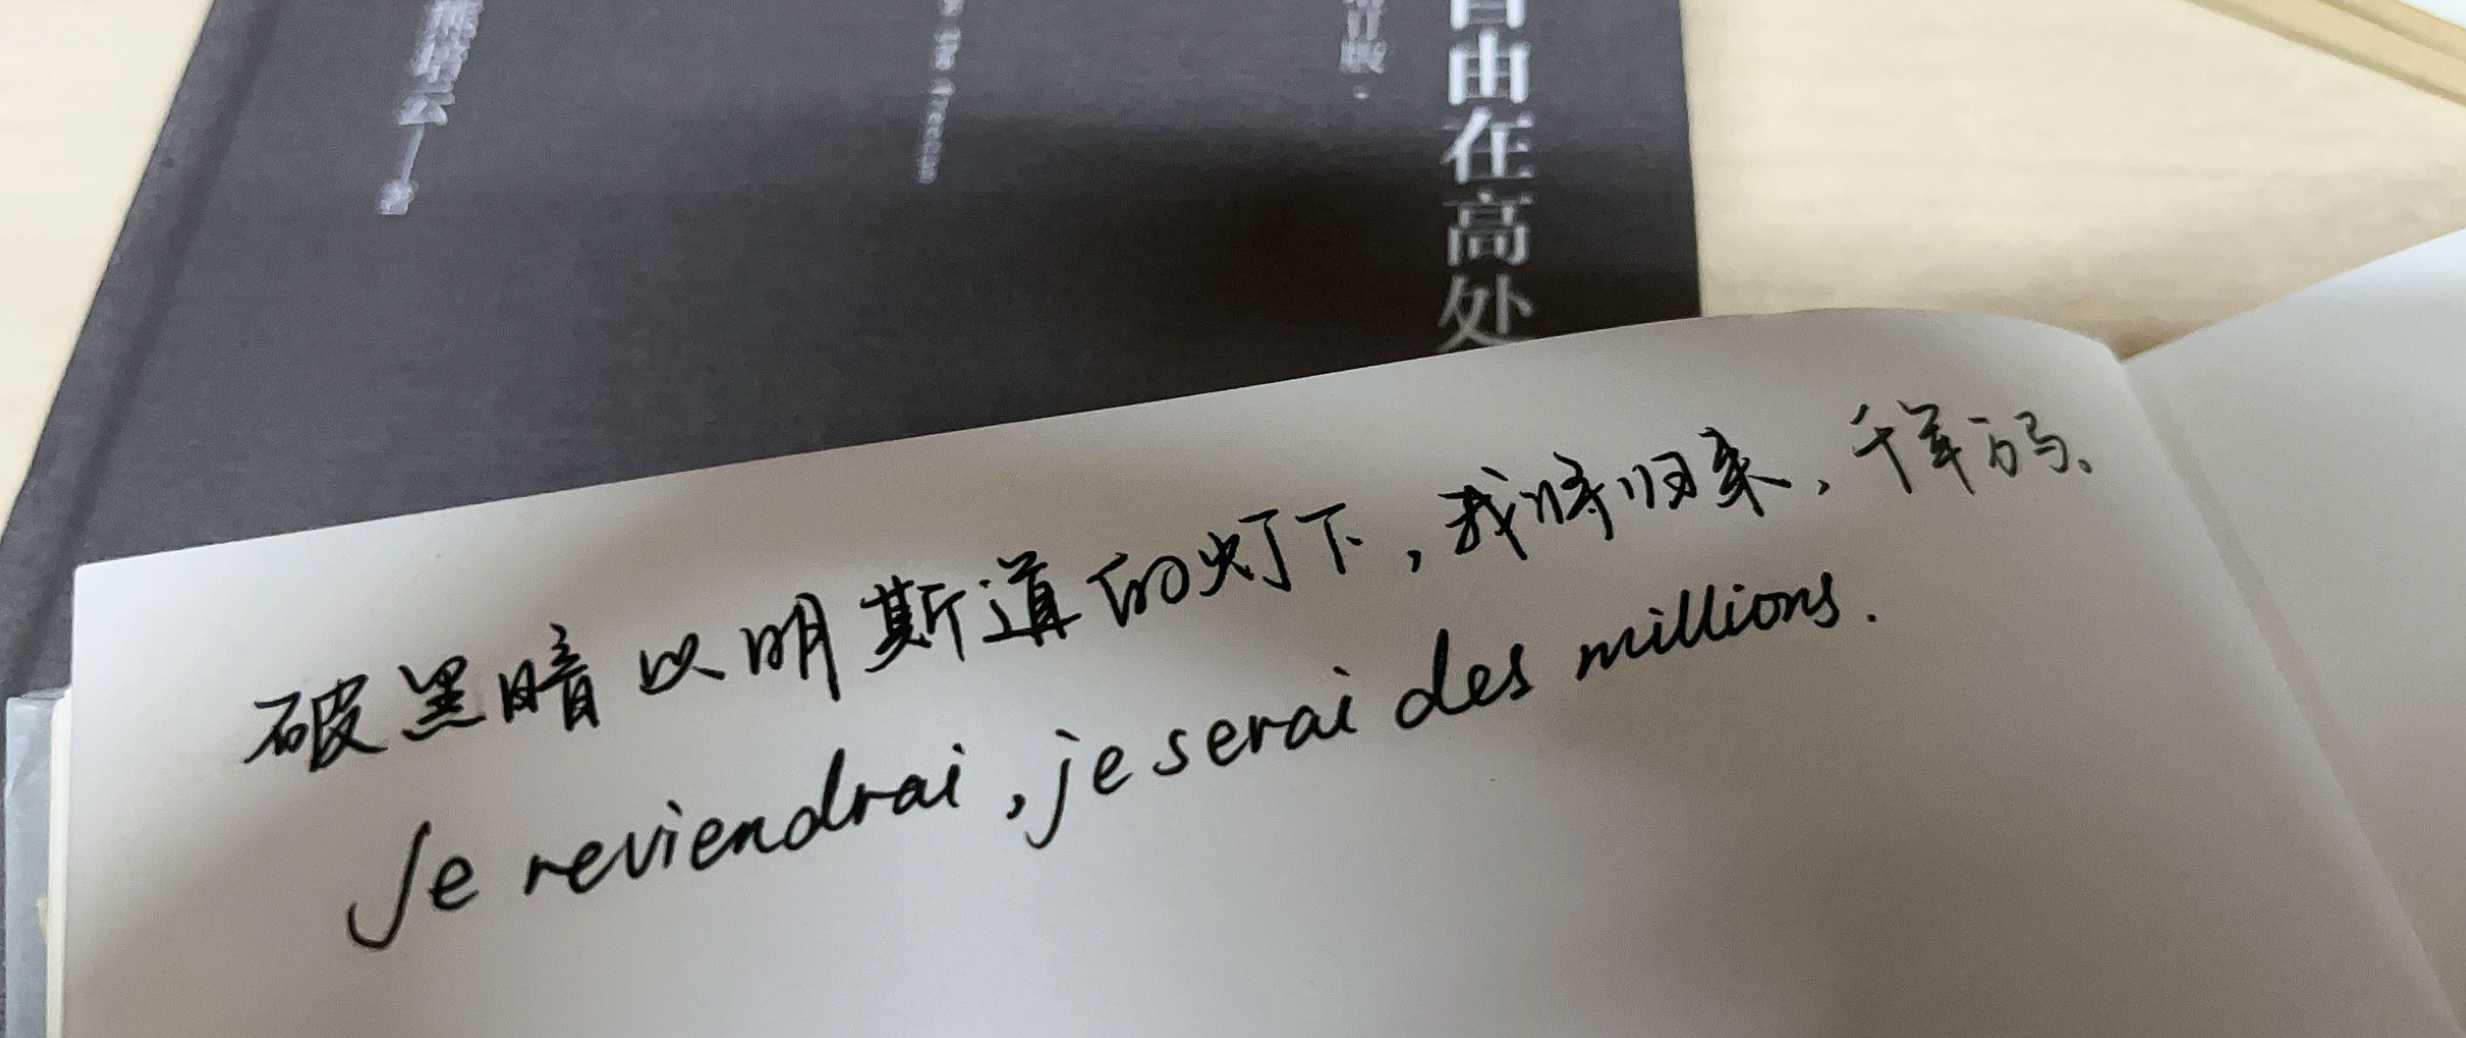 自由在高处
增订版
熊培云 一 著
破黑暗以明斯道的灯下，我将归来，千军万马。
Je reviendrai, je serai des millions.